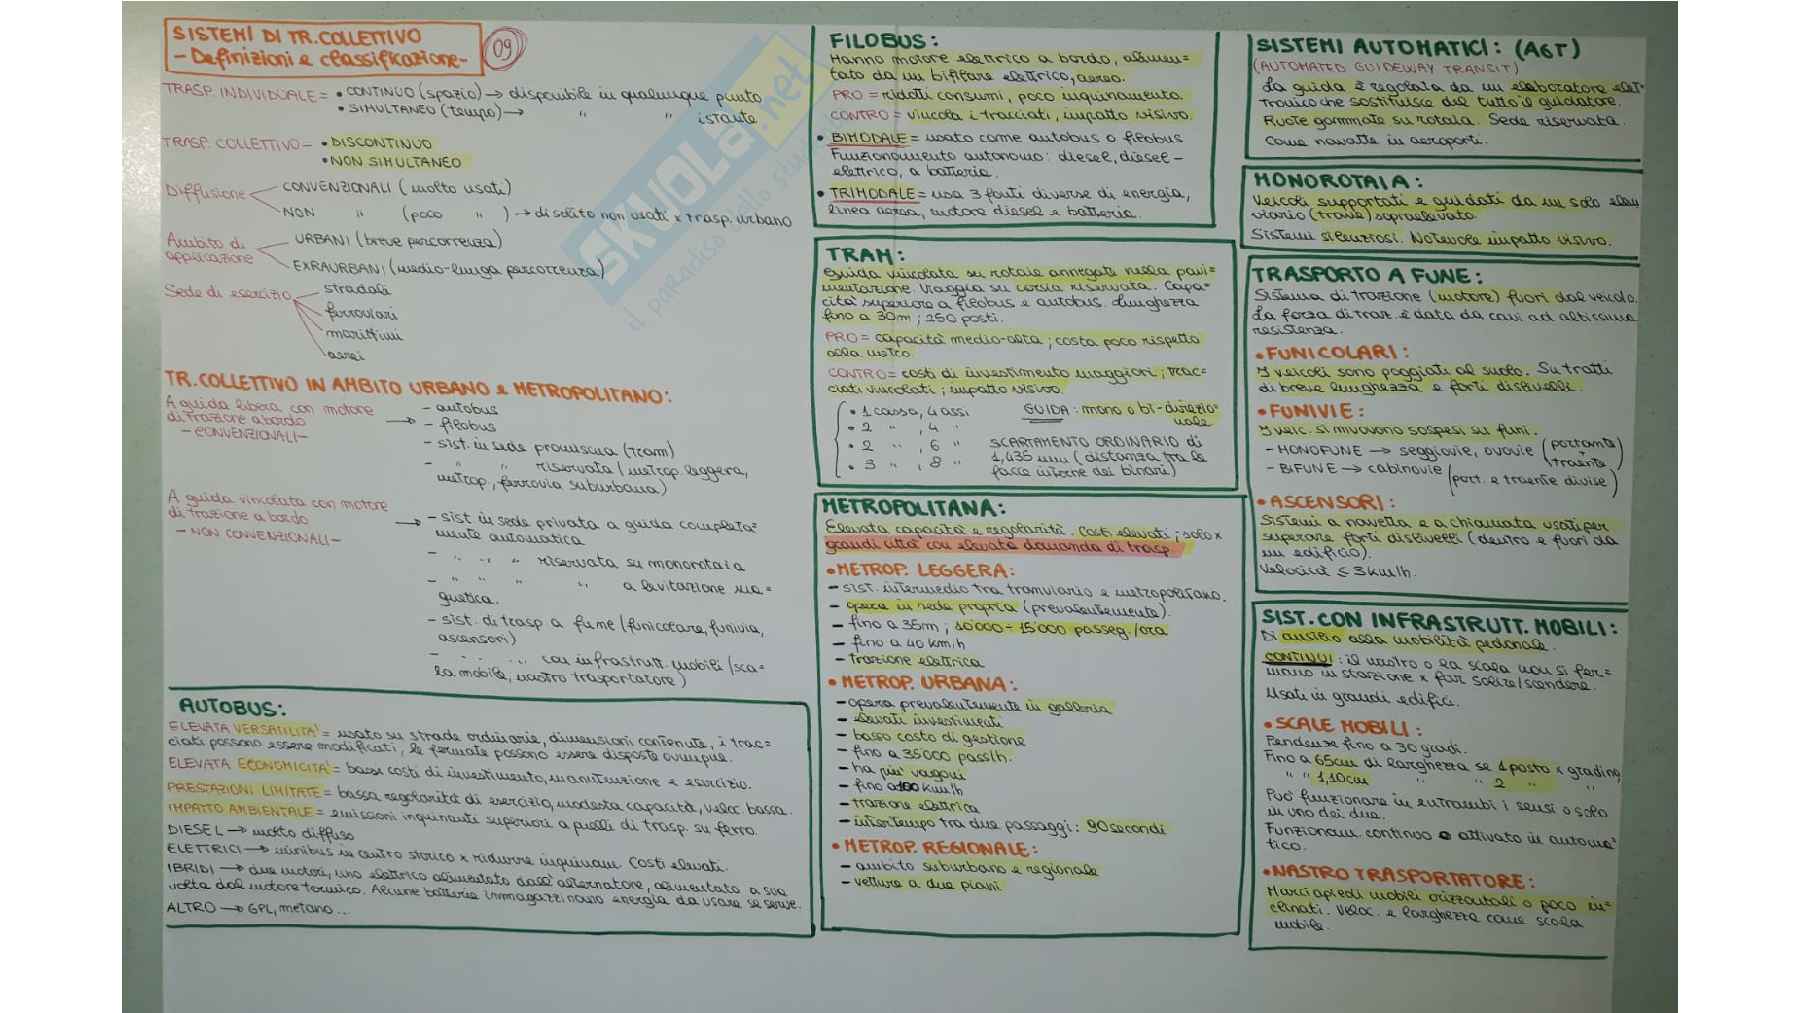 SISTEMI DI TR. COLLETTIVO
- Definizioni e classificazione -
09
TRASP. INDIVIDUALE = • CONTINUO (spazio) → disponibile in qualunque punto
• SIMULTANEO (tempo) → " " istante
TRASP. COLLETTIVO - • DISCONTINUO
• NON SIMULTANEO
Diffusione
CONVENZIONALI (molto usati)
NON " (poco " ) → di solito non usati x trasp. urbano
Ambito di
applicazione
URBANI (breve percorrenza)
EXRAURBANI (medio-lunga percorrenza)
Sede di esercizio
stradali
ferroviari
marittimi
aerei
TR. COLLETTIVO IN AMBITO URBANO e METROPOLITANO:
A guida libera con motore
di trazione a bordo
- CONVENZIONALI -
→ - autobus
- filobus
- sist. in sede promiscua (tram)
- " " riservata (metrop. leggera,
metrop, ferrovia suburbana)
A guida vincolata con motore
di trazione a bordo
- NON CONVENZIONALI -
→ - sist in sede privata a guida completa=
mente automatica
- " " " riservata su monorotaia
- " " " " a levitazione ma=
gnetica.
- sist. di trasp a fune (funicolare, funivia,
ascensori)
- " " " con infrastrutt. mobili (sca=
la mobile, nastro trasportatore)
AUTOBUS:
ELEVATA VERSATILITA' = usato su strade ordinarie, dimensioni contenute, i trac=
ciati possono essere modificati, le fermate possono essere disposte ovunque.
ELEVATA ECONOMICITA' = bassi costi di investimento, manutenzione e esercizio.
PRESTAZIONI LIMITATE = bassa regolarità di esercizio, modesta capacità, veloc bassa.
IMPATTO AMBIENTALE = emissioni inquinanti superiori a quelli di trasp. su ferro.
DIESEL → molto diffuso
ELETTRICI → minibus in centro storico x ridurre inquinam. Costi elevati.
IBRIDI → due motori, uno elettrico alimentato dall'alternatore, alimentato a sua
volta dal motore termico. Alcune batterie immagazzinano energia da usare se serve.
ALTRO → GPL, metano...
FILOBUS:
Hanno motore elettrico a bordo, alimen=
tato da un bifilare elettrico, aereo.
PRO = ridotti consumi, poco inquinamento.
CONTRO = vincola i tracciati, impatto visivo.
• BIMODALE = usato come autobus o filobus
Funzionamento autonomo: diesel, diesel-
elettrico, a batteria.
• TRIMODALE = usa 3 fonti diverse di energia,
linea aerea, motore diesel e batterie.
TRAM:
Guida vincolata su rotaie annegate nella pavi=
mentazione. Viaggia su corsia riservata. Capa=
cità superiore a filobus e autobus. Lunghezza
fino a 30m; 250 posti.
PRO = capacità medio-alta; costa poco rispetto
alla metro
CONTRO = costi di investimento maggiori; trac=
ciati vincolati; impatto visivo.
• 1 cassa, 4 assi
• 2 " , 4 "
• 2 " , 6 "
• 3 " , 8 "
GUIDA: mono o bi-direzio=
nale
SCARTAMENTO ORDINARIO di
1,435 mm (distanza tra le
facce interne dei binari)
METROPOLITANA:
Elevata capacità e regolarità. Cost. elevati; solo x
grandi città con elevata domanda di trasp.
• METROP. LEGGERA:
- sist. intermedio tra tramviario e metropolitano.
- opera in sede propria (prevalentemente).
- fino a 35m; 10'000 ÷ 15'000 passeg./ora
- fino a 40 km/h
- trazione elettrica
• METROP. URBANA:
- opera prevalentemente in galleria
- elevati investimenti
- basso costo di gestione
- fino a 35'000 pass/h.
- ha più vagoni
- fino a 100 km/h
- trazione elettrica
- intertempo tra due passaggi: 90 secondi
• METROP. REGIONALE:
- ambito suburbano e regionale
- vetture a due piani
SISTEMI AUTOMATICI: (AGT)
(AUTOMATED GUIDEWAY TRANSIT)
La guida è regolata da un elaboratore elet=
tronico che sostituisce del tutto il guidatore.
Ruote gommate su rotaia. Sede riservata.
Come navette in aeroporti.
MONOROTAIA:
Veicoli supportati e guidati da un solo elem
viario (trave) sopraelevato.
Sistemi silenziosi. Notevole impatto visivo.
TRASPORTO A FUNE:
Sistema di trazione (motore) fuori dal veicolo.
La forza di traz. è data da cavi ad altissima
resistenza.
• FUNICOLARI:
I veicoli sono poggiati al suolo. Su tratti
di breve lunghezza e forti dislivelli.
• FUNIVIE:
I veic. si muovono sospesi su funi.
- MONOFUNE → seggiovie, ovovie (portante +
traente)
- BIFUNE → cabinovie (port. e traente divise)
• ASCENSORI:
Sistemi a navetta e a chiamata usati per
superare forti dislivelli (dentro e fuori da
un edificio).
Velocità ≤ 3 km/h.
SIST. CON INFRASTRUTT. MOBILI:
Di ausilio alla mobilità pedonale.
CONTINUI: il nastro o la scala non si fer=
mano in stazione x far salire/scendere.
Usati in grandi edifici.
• SCALE MOBILI:
Pendenze fino a 30 gradi.
Fino a 65cm di larghezza se 1 posto x gradino
" " 1,10cm " " 2 " "
Può funzionare in entrambi i sensi o solo
in uno dei due.
Funzionam. continuo o attivato in automa=
tico.
• NASTRO TRASPORTATORE:
Marciapiedi mobili orizzontali o poco in=
clinati. Veloc. e larghezza come scala
mobile.
SKUOLA.net
il paradiso dello stu